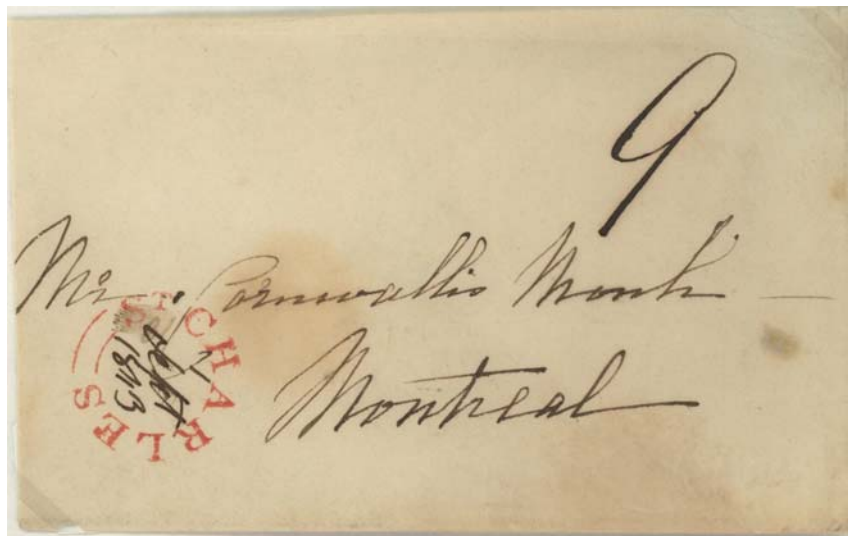 9
Mr. Cornwallis Monk
Montreal
ST CHARLES
1843